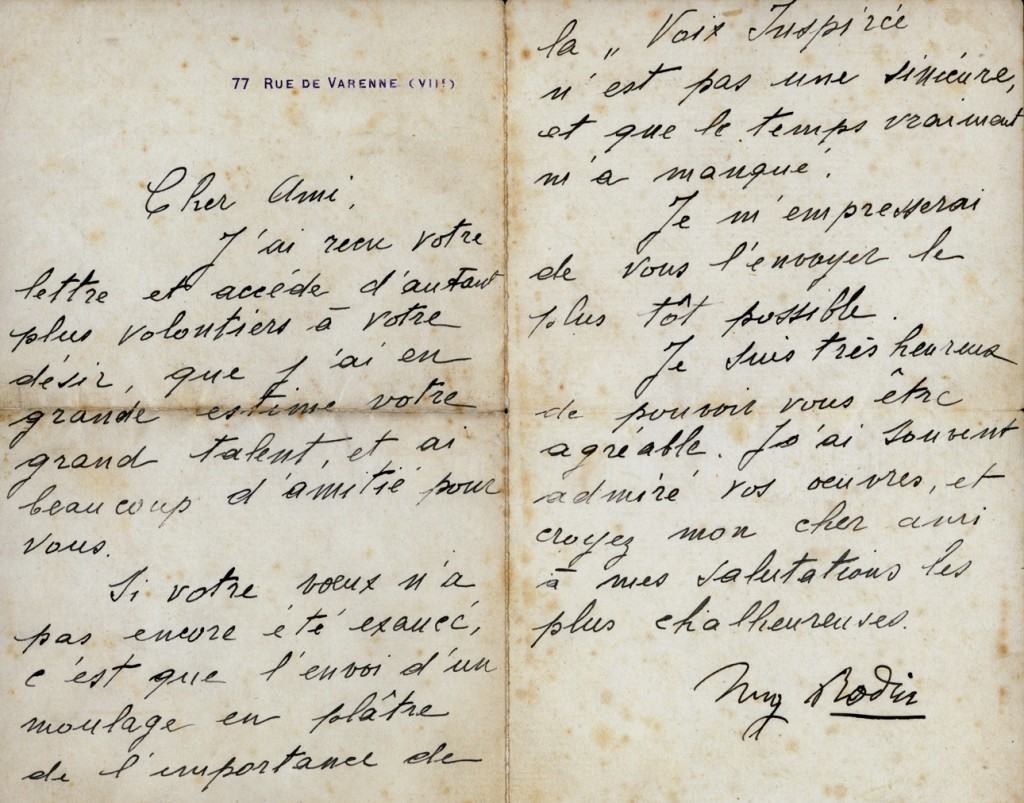 77 RUE DE VARENNE (VIIe)
Cher Ami,
J'ai recu votre
lettre et accéde d'autant
plus volontiers à votre
désir, que j'ai en
grande estime votre
grand talent, et ai
beaucoup d'amitié pour
vous.
Si votre voeux n'a
pas encore été exaucé,
c'est que l'envoi d'un
moulage en plâtre
de l'importance de
la „ Voix Inspirée
n'est pas une sinécure,
et que le temps vraiment
m'a manqué.
Je m'empresserai
de vous l'envoyer le
plus tôt possible.
Je suis très heureux
de pouvoir vous être
agréable. J'ai souvent
admiré vos oeuvres, et
croyez mon cher ami
à mes salutations les
plus chalheureuses.
Aug Rodin